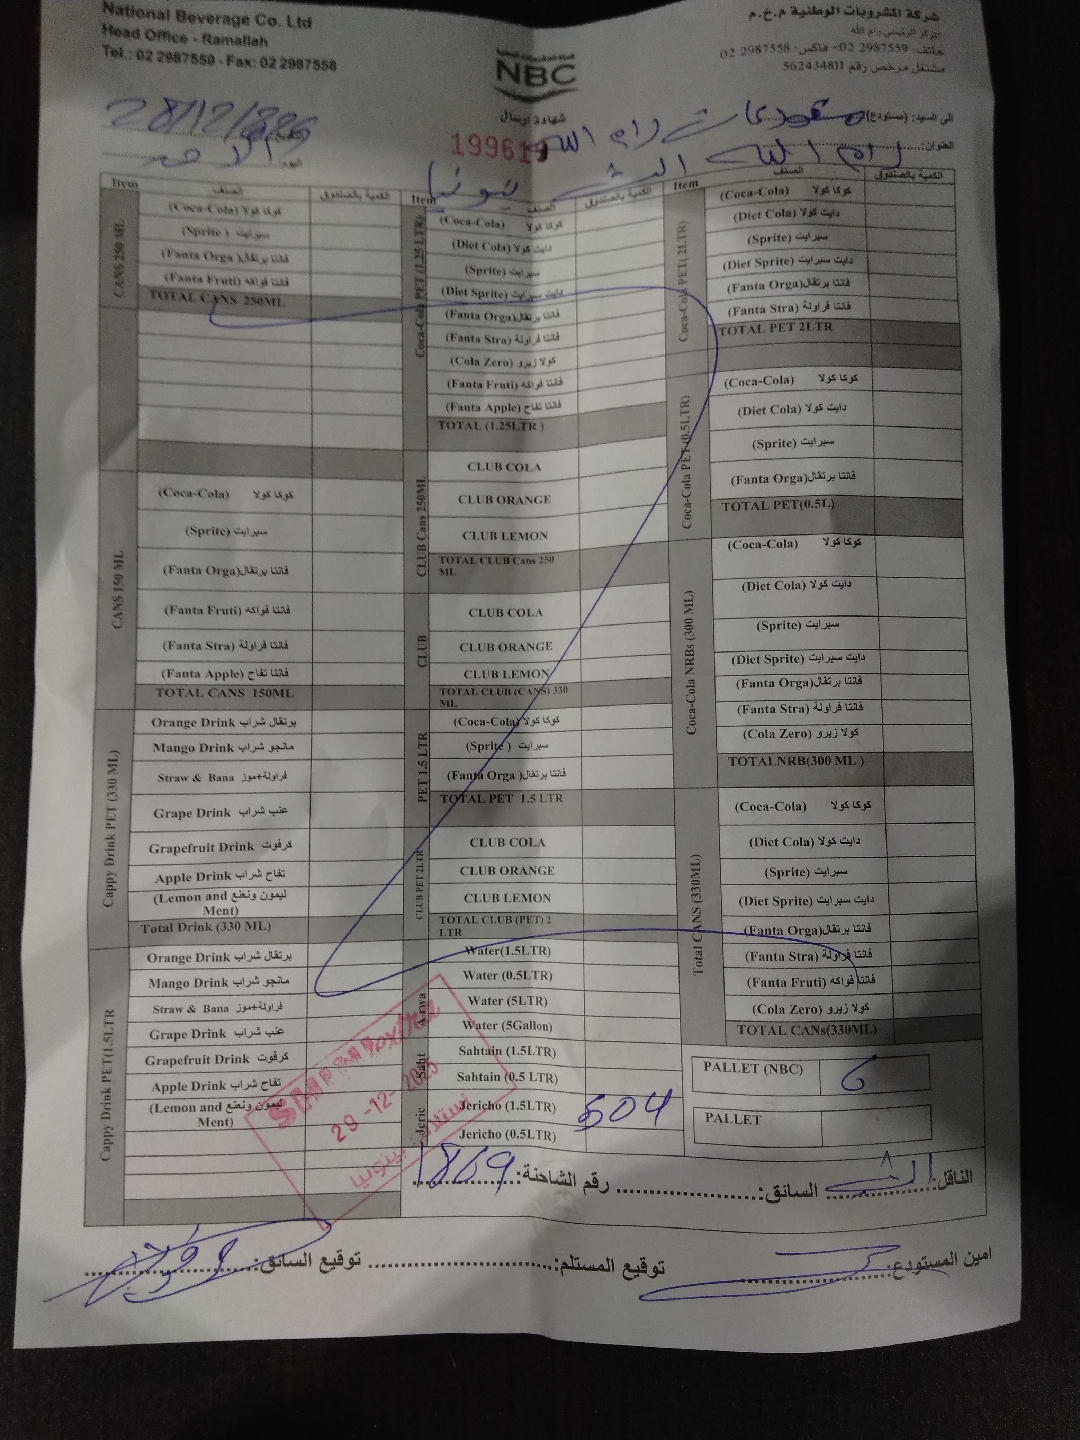 National Beverage Co. Ltd
Head Office - Ramallah
Tel.: 02 2987559 - Fax: 02 2987558
NBC
شركة المشروبات الوطنية م.خ.م
المركز الرئيسي رام الله
هاتف: 2987559 02- فاكس: 2987558 02
مشتغل مرخص رقم 562434811
شهادة ارسال
الى السيد: (مستودع)
العنوان:
رام الله
28/12/
اليوم
الاحد
Item الصنف الكمية بالصندوق
CANS 250 ML
(Coca-Cola) كوكا كولا
(Sprite) سبرايت
(Fanta Orga) فانتا برتقال
(Fanta Fruti) فانتا فواكه
TOTAL CANS 250ML
CANS 150 ML
(Coca-Cola) كوكا كولا
(Sprite) سبرايت
(Fanta Orga) فانتا برتقال
(Fanta Fruti) فانتا فواكه
(Fanta Stra) فانتا فراولة
(Fanta Apple) فانتا تفاح
TOTAL CANS 150ML
Cappy Drink PET (330 ML)
Orange Drink برتقال شراب
Mango Drink مانجو شراب
Straw & Bana فراولة+موز
Grape Drink عنب شراب
Grapefruit Drink كرفوت
Apple Drink تفاح شراب
(Lemon and ليمون ونعنع
Ment)
Total Drink (330 ML)
Cappy Drink PET(1.5LTR
Orange Drink برتقال شراب
Mango Drink مانجو شراب
Straw & Bana فراولة+موز
Grape Drink عنب شراب
Grapefruit Drink كرفوت
Apple Drink تفاح شراب
(Lemon and ليمون ونعنع
Ment)
Item الصنف الكمية بالصندوق
Coca-Cola PET (1.25 LTR)
(Coca-Cola) كوكا كولا
(Diet Cola) دايت كولا
(Sprite) سبرايت
(Diet Sprite) دايت سبرايت
(Fanta Orga) فانتا برتقال
(Fanta Stra) فانتا فراولة
(Cola Zero) كولا زيرو
(Fanta Fruti) فانتا فواكه
(Fanta Apple) فانتا تفاح
TOTAL (1.25LTR )
CLUB Cans 250ML
CLUB COLA
CLUB ORANGE
CLUB LEMON
TOTAL CLUB Cans 250
ML
CLUB
CLUB COLA
CLUB ORANGE
CLUB LEMON
TOTAL CLUB (CANS) 330
ML
PET 1.5 LTR
(Coca-Cola) كوكا كولا
(Sprite ) سبرايت
(Fanta Orga ) فانتا برتقال
TOTAL PET 1.5 LTR
CLUB PET 2LTR
CLUB COLA
CLUB ORANGE
CLUB LEMON
TOTAL CLUB (PET) 2
LTR
Water(1.5LTR)
Water (0.5LTR)
Water (5LTR)
Water (5Gallon)
Saht
Sahtain (1.5LTR)
Sahtain (0.5 LTR)
Jeric
Jericho (1.5LTR) 504
Jericho (0.5LTR)
Item الصنف الكمية بالصندوق
Coca-Cola PET( 2LTR)
(Coca-Cola) كوكا كولا
(Diet Cola) دايت كولا
(Sprite) سبرايت
(Diet Sprite) دايت سبرايت
(Fanta Orga) فانتا برتقال
(Fanta Stra) فانتا فراولة
TOTAL PET 2LTR
Coca-Cola PET(0.5LTR)
(Coca-Cola) كوكا كولا
(Diet Cola) دايت كولا
(Sprite) سبرايت
(Fanta Orga) فانتا برتقال
TOTAL PET(0.5L)
Coca-Cola NRBs (300 ML)
(Coca-Cola) كوكا كولا
(Diet Cola) دايت كولا
(Sprite) سبرايت
(Diet Sprite) دايت سبرايت
(Fanta Orga) فانتا برتقال
(Fanta Stra) فانتا فراولة
(Cola Zero) كولا زيرو
TOTALNRB(300 ML )
Total CANS (330ML)
(Coca-Cola) كوكا كولا
(Diet Cola) دايت كولا
(Sprite) سبرايت
(Diet Sprite) دايت سبرايت
(Fanta Orga) فانتا برتقال
(Fanta Stra) فانتا فراولة
(Fanta Fruti) فانتا فواكه
(Cola Zero) كولا زيرو
TOTAL CANs(330ML)
PALLET (NBC) 6
PALLET
29-12-2025
الناقل: السائق: رقم الشاحنة: 1869
امين المستودع: توقيع المستلم: توقيع السائق: